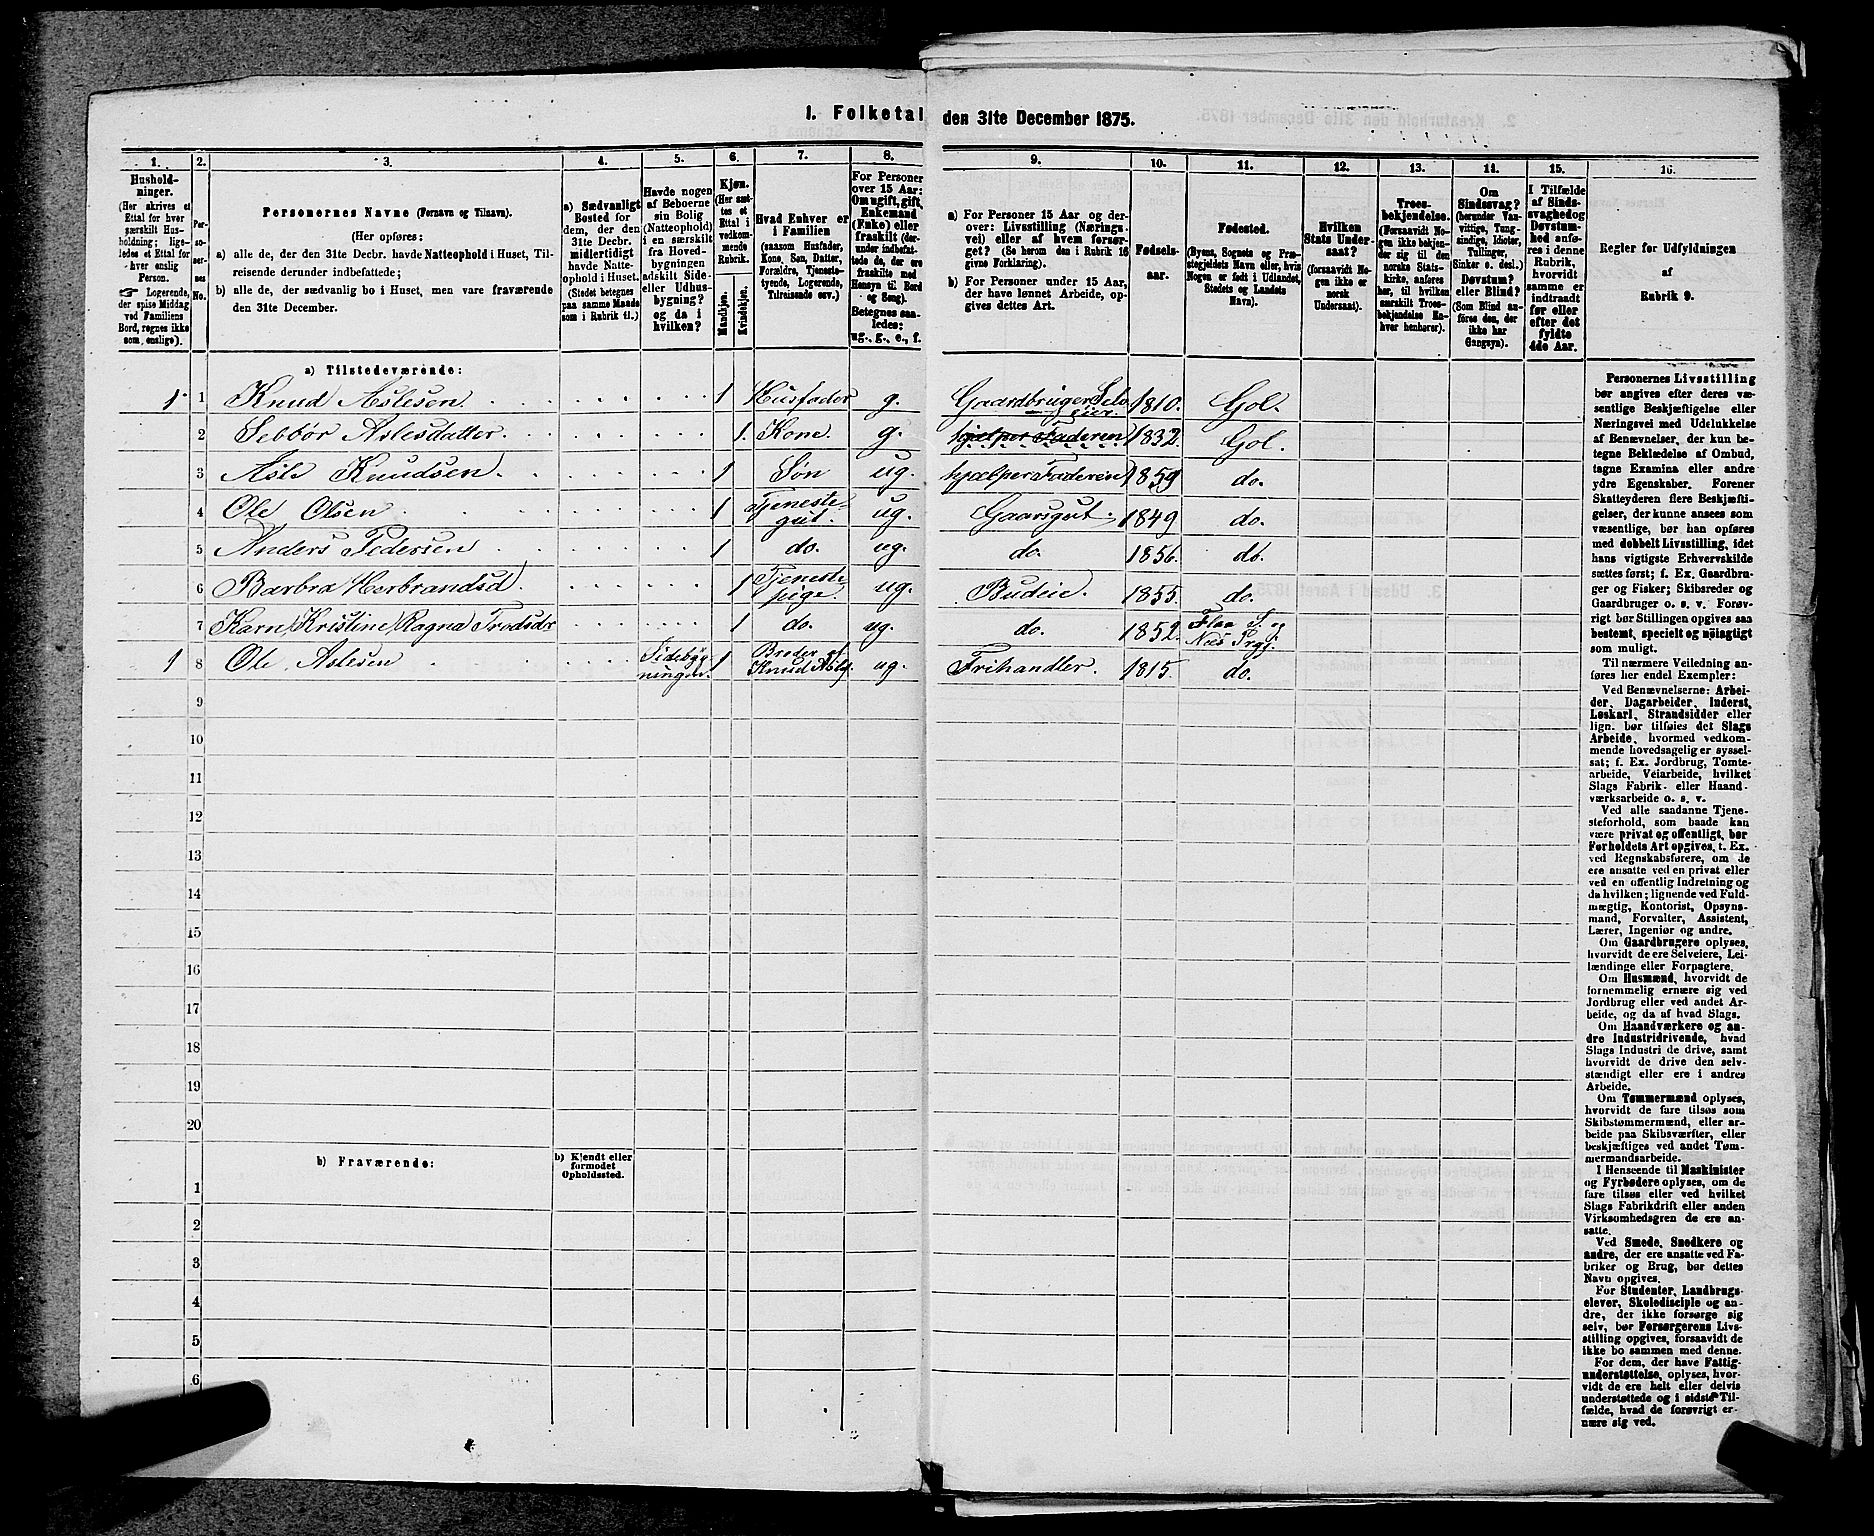 1. Folketal den 31te December 1875.
1. 2. 3. 4. 5. 6. 7. 8. 9. 10. 11. 12. 13. 14. 15. 16.
Husholdninger.
(Her skrives et
Ettal for hver
særskilt Hus-
holdning; lige-
ledes et Ettal for
hver enslig
Person.
☞ Logerende,
der spise Middag
ved Familiens
Bord, regnes ikke
som enslige).
Per-
so-
ner-
nes
No.
Personernes Navne (Fornavn og Tilnavn).
(Her opføres:
a) alle de, der den 31te Decbr. havde Natteophold i Huset, Til-
reisende derunder indbefattede;
b) alle de, der sædvanlig bo i Huset, men vare fraværende
den 31te December.
a) Sædvanligt
Bosted for
dem, der den
31te Decbr.
midlertidigt
havde Natte-
ophold i Huset.
(Stedet betegnes
paa samme Maade
som i Rubrik 11.)
Havde nogen
af Beboerne
sin Bolig
(Natteophold)
i en særskilt
fra Hoved-
bygningen
adskilt Side-
eller Udhus-
bygning?
og da i
hvilken?
Kjøn.
(Her sæt-
tes et
Ettal i
vedkom-
mende
Rubrik.
Mandkjøn.
Kvindekjøn.
Hvad Enhver er
i Familien
(saasom Husfader,
Kone, Søn, Datter,
Forældre, Tjeneste-
tyende, Logerende,
Tilreisende osv.)
For Personer
over 15 Aar:
Om ugift, gift,
Enkemand
(Enke) eller
fraskilt (der-
under indbefat-
tede de, der ere
fraskilte med
Hensyn til Bord
og Seng).
Betegnes saa-
ledes:
ug., g., e., f.
a) For Personer 15 Aar og der-
over: Livsstilling (Nærings-
vei) eller af hvem forsør-
get? (Se herom den i Rubrik 16
givne Forklaring).
b) For Personer under 15 Aar,
der have lønnet Arbeide, op-
gives dettes Art.
Fødsels-
aar.
Fødested.
(Byens, Sognets og Præ-
stegjeldets Navn eller, hvis
Nogen er født i Udlandet,
Stedets og Landets
Navn).
Hvilken
Stats Under-
saat?
(forsaavidt No-
gen ikke er
norsk
Undersaat).
Troes-
bekjendelse.
(Forsaavidt No-
gen ikke bekjen-
der sig til den
norske Stats-
kirke, anføres
her, til hvilken
særskilt Troes-
bekjendelse En-
hver henhører).
Om
Sindssvag?
(herunder Van-
vittige, Tung-
sindige, Idioter,
Tullinger,
Sinker o. desl.)
Døvstum?
eller Blind?
(Som Blind an-
føres den, der
ikke har
Gangsyn).
I Tilfælde
af Sinds-
svaghed og
Døvstum-
hed anfø-
res i denne
Rubrik,
hvorvidt
samme er
indtraadt
før eller
efter det
fyldte
4de Aar.
Regler for Udfyldningen
af
Rubrik 9.
a) Tilstedeværende:
1 1 Knud Aslesen 1 Husfader g. Gaardbruger Selv eier. 1810. Gol.
2 Sebbør Aslesdatter 1. Kone. g. hjælper Faderen 1832. Gol.
3 Asle Knudsen 1 Søn ug. hjælper Faderen 1859 do.
4 Ole Olsen 1 Tjeneste-gut. ug. Gaarsgut. 1849 do.
5 Anders Pedersen 1 do. ug. do. 1856. do.
6 Barbra Herbrandsd 1 Tjeneste pige. ug. Budeie. 1855. do.
7 Karn/Kristine/Ragna Trodsdr 1 do. ug. do. 1852. Flaa S. og Næs Prgj.
1 8 Ole Aslesen Sidebyg ningen. 1 Broder af Knud Asles. ug. Frihandler. 1815. do.
9
10
11
12
13
14
15
16
17
18
19
20
b) Fraværende:
b) Kjendt eller
formodet
Opholdssted.
1
2
3
4
5
6
Personernes Livsstilling
bør angives efter deres væ-
sentlige Beskjæftigelse eller
Næringsvei med Udelukkelse
af Benævnelser, der kun be-
tegne Beklædelse af Ombud,
tagne Examina eller andre
ydre Egenskaber. Forener
Skatteyderen flere Beskjæfti-
gelser, der kunne ansees som
væsentlige, bør han opføres
med dobbelt Livsstilling, idet
hans vigtigste Erhvervskilde
sættes først; f. Ex. Gaardbru-
ger og Fisker; Skibsreder og
Gaardbruger o. s. v. Forøv-
rigt bør Stillingen opgives saa
bestemt, specielt og nøiagtigt
som muligt.
Til nærmere Veiledning an-
føres her endel Exempler:
Ved Benævnelserne: Arbei-
der, Dagarbeider, Inderst,
Løskarl, Strandsidder eller
lign. bør tilføies det Slags
Arbeide, hvormed vedkom-
mende hovedsagelig er syssel-
sat; f. Ex. Jordbrug, Tomte-
arbeide, Veiarbeide, hvilket
Slags Fabrik- eller Haand-
værksarbeide o. s. v.
Ved alle saadanne Tjene-
steforhold, som baade kan
være privat og offentligt, bør
Forholdets Art opgives, t. Ex.
ved Regnskabsførere, om de
ere ansatte ved en privat eller
ved en offentlig Indretning og
da hvilken; lignende ved Fuld-
mægtig, Kontorist, Opsyns-
mand, Forvalter, Assistent,
Lærer, Ingeniør og andre.
Om Gaardbrugere oplyses,
hvorvidt de ere Selveiere, Lei-
lændinge eller Forpagtere.
Om Husmænd, hvorvidt de
fornemmelig ernære sig ved
Jordbrug eller ved andet Ar-
beide, og da af hvad Slags.
Om Haandværkere og an-
dre Industridrivende, hvad
Slags Industri de drive, samt
hvorvidt de drive den selv-
stændigt eller ere i andres
Arbeide.
Om Tømmermænd oplyses,
hvorvidt de fare tilsøs som
Skibstømmermænd, eller ar-
beide paa Skibsværfter, eller
beskjæftiges ved andet Tøm-
mermandsarbeide.
I Henseende til Maskinister
og Fyrbødere oplyses, om de
fare tilsøs eller ved hvilket
Slags Fabrikdrift eller anden
Virksomhedsgren de ere an-
satte.
Ved Smede, Snedkere og
andre, der ere ansatte ved Fa-
briker og Brug, bør dettes
Navn opgives.
For Studenter, Landbrugs-
elever, Skoledisciple og an-
dre, der ikke forsørge sig
selv, bør Forsørgerens Livs-
stilling opgives, forsaavidt de
ikke bo sammen med denne.
For dem, der have Fattig-
understøttelse, oplyses, hvor-
vidt de ere helt eller delvis
understøttede og i sidste Til-
fælde, hvad de forøvrigt er-
nære sig ved.